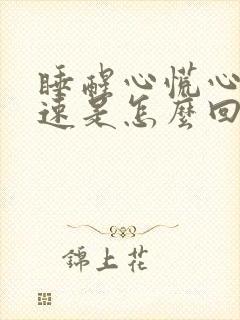 睡醒心慌心
速是怎麼回
錦上花